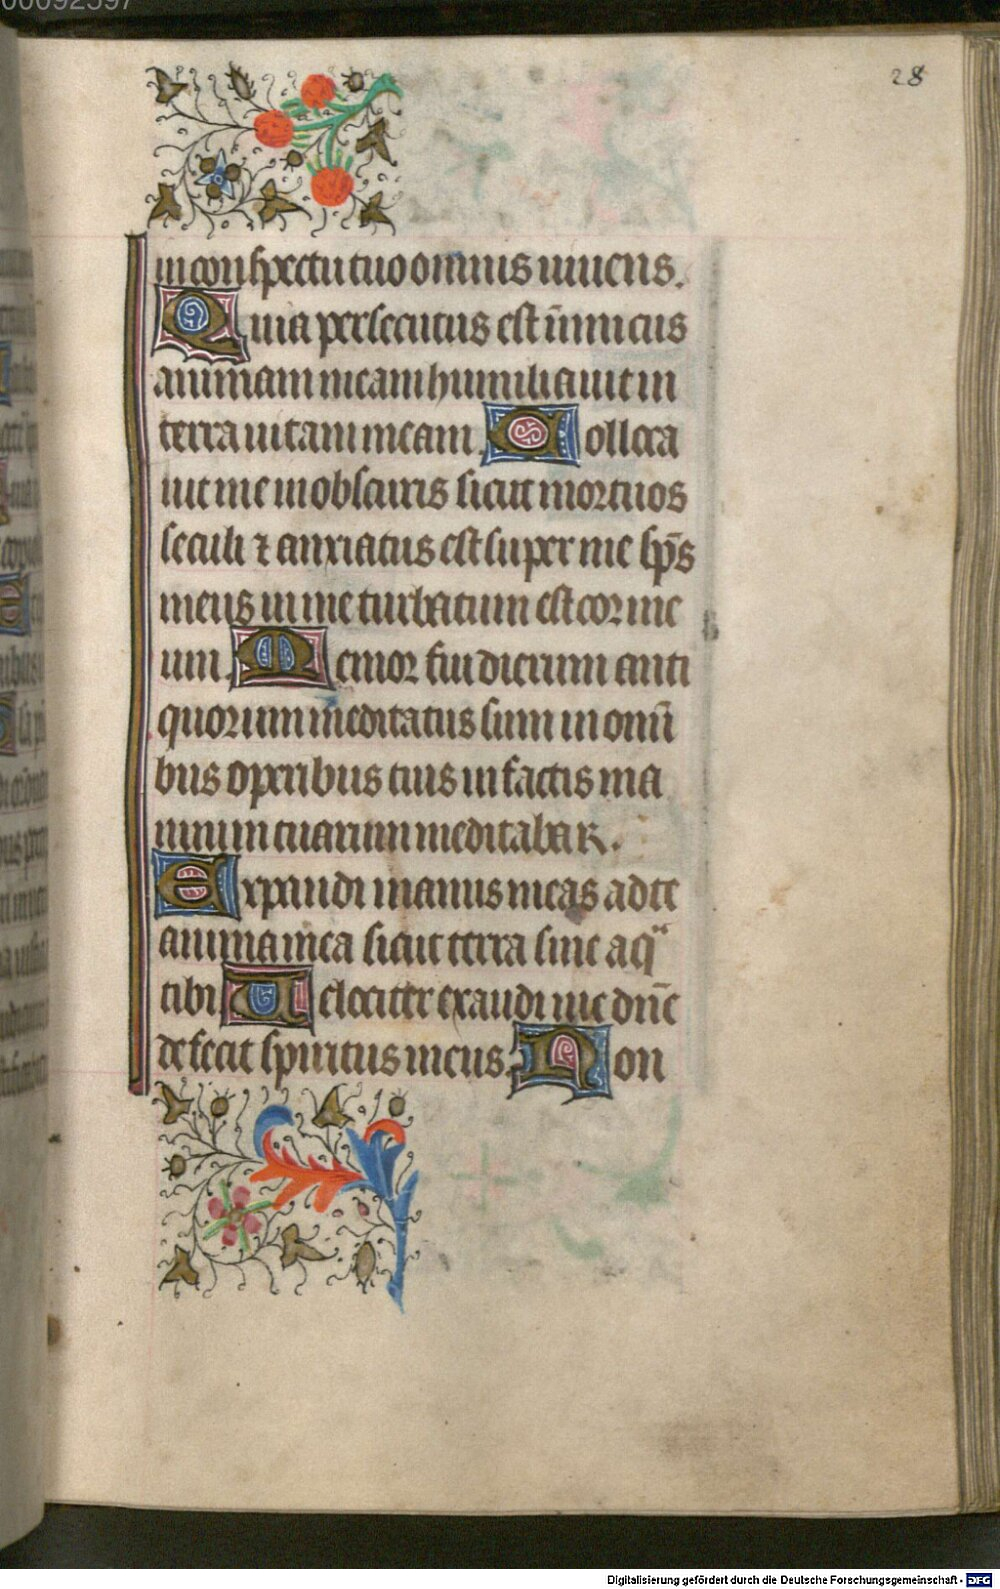 28
in conspectu tuo omnis uiuens.
Quia persecutus est inimicus
animam meam humiliauit in
terra uitam meam. Colloca
uit me in obscuris sicut mortuos
seculi ⁊ anxiatus est super me sp̄s
meus in me turbatum est cor me
um. Memor fui dierum anti
quorum meditatus sum in omni
bus operibus tuis in factis ma
nuum tuarum meditabar.
Expandi manus meas ad te
anima mea sicut terra sine aqᵃ
tibi. Uelociter exaudi me dn̄e
defecit spiritus meus. Non
Digitalisierung gefördert durch die Deutsche Forschungsgemeinschaft - DFG